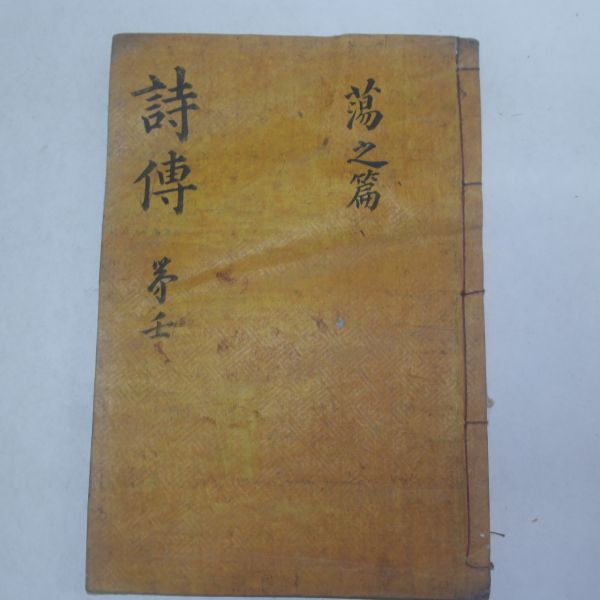 蕩之篇
詩傳 苐壬